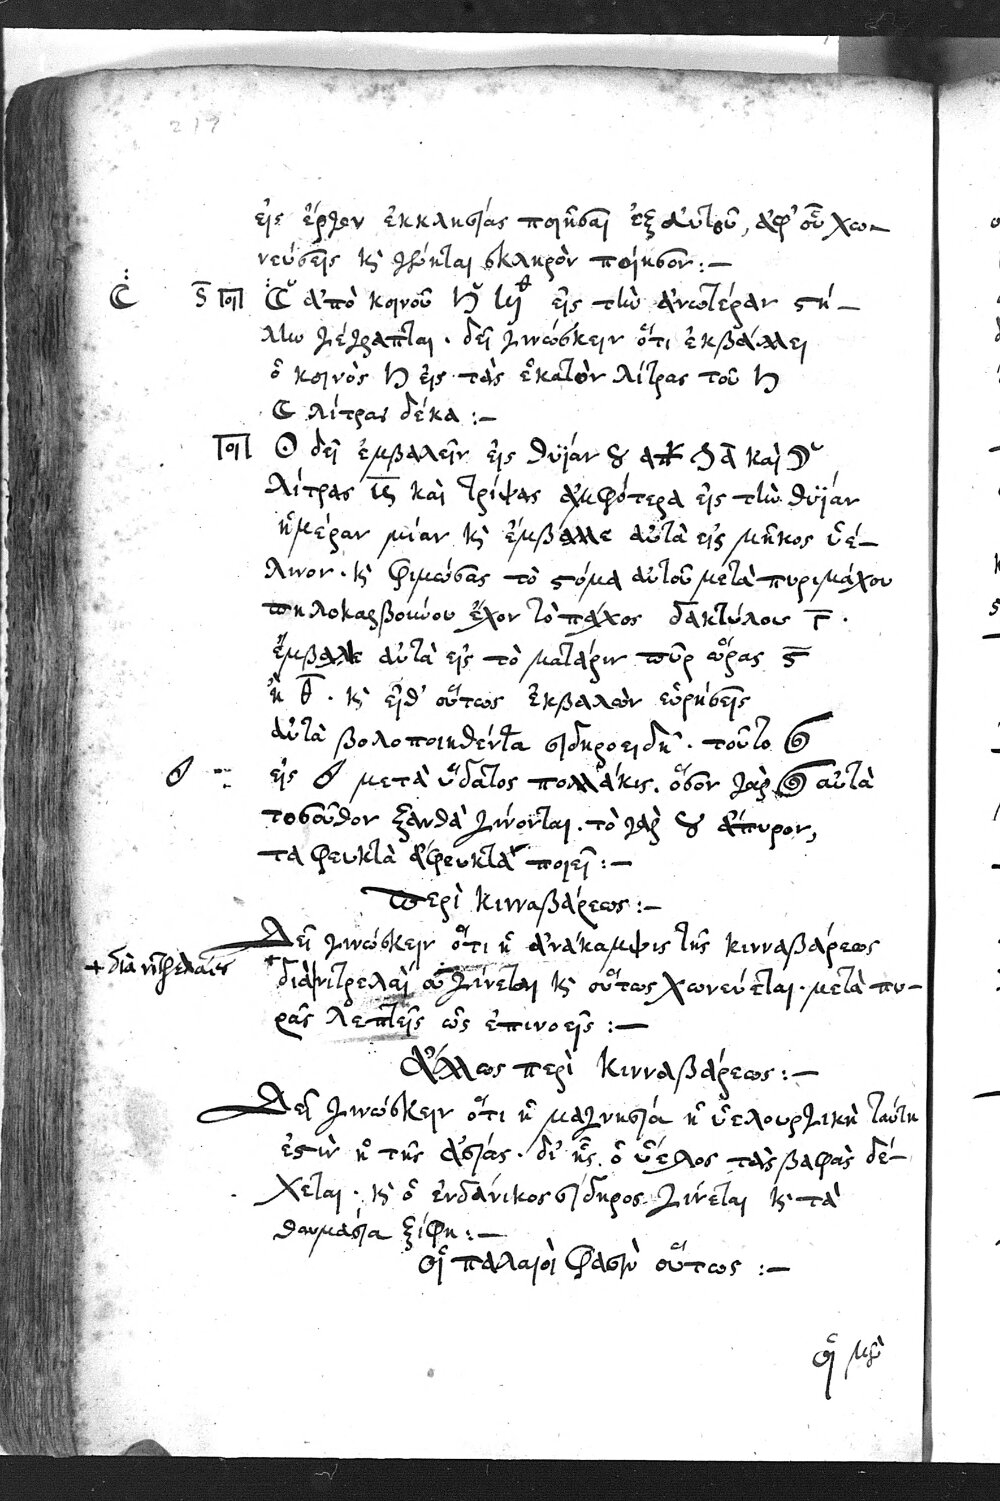 217
εἰς ἔργον ἐκκλησίας ποιῆσαι ἐξ αὐτοῦ, ἀφ' οὗ χω-
νεύσεις κ γίνηται σκληρὸν ποίησον :-
ἀπὸ κοινοῦ εἰς τὴν ἀνωτέραν στή-
λην γέγραπται · δεῖ γινώσκειν ὅτι ἐκβάλλει
ὁ κοινὸς ♄ εἰς τὰς ἑκατὸν λίτρας τοῦ ♄
☾ λίτρας δέκα :-
☉ δεῖ ἐμβαλεῖν εἰς θυΐαν καὶ
λίτρας ιϛ καὶ τρίψας ἀμφότερα εἰς τὴν θυΐαν
ἡμέραν μίαν κ ἔμβαλλε αὐτὰ εἰς μῆκος ὑέ-
λινον · κ φιμώσας τὸ στόμα αὐτοῦ μετὰ πυριμάχου
πηλοκαρβουνου ἔχον τὸ πάχος δακτύλους γ ·
ἔμβαλε αὐτὰ εἰς τὸ ματάριν πῦρ ὥρας ϛ
ἢ θ · κ εἶθ' οὕτως ἐκβαλὼν εὑρήσεις
αὐτὰ βολοποιηθέντα σιδηροειδῆ · τοῦτο
εἰς μετὰ ὕδατος πολλάκις. ὅσον γὰρ αὐτὰ
τοσοῦτον ξανθὰ γίνονται · τὸ γὰρ ἄπυρον,
τα φευκτὰ ἄφευκτα ποιεῖ :-
Περὶ κινναβάρεως :-
Δεῖ γινώσκειν ὅτι ἡ ἀνάκαμψις τῆς κινναβάρεως
+ διὰ νιτρελαίου
διὰ νιτρελαι οὐ γίνεται κ οὕτως χωνεύεται · μετὰ πυ-
ρᾶς λεπτεῖς ὡς ἐπινοεῖς :-
Ἄλλως περὶ κινναβάρεως :-
Δεῖ γινώσκειν ὅτι ἡ μαγνησία ἡ ὑελουργικὴ ταύτη
ἐστὶν ἡ τῆς ἀσίας · δι' ἧς. ὁ ὕελος τὰς βαφὰς δέ-
χεται · κ ὁ ἐνδάνικος σίδηρος γίνεται κ τὰ
θαυμασία ξίφη :-
οἱ παλαιοὶ φασὶν οὕτως :-
οἱ μὲν